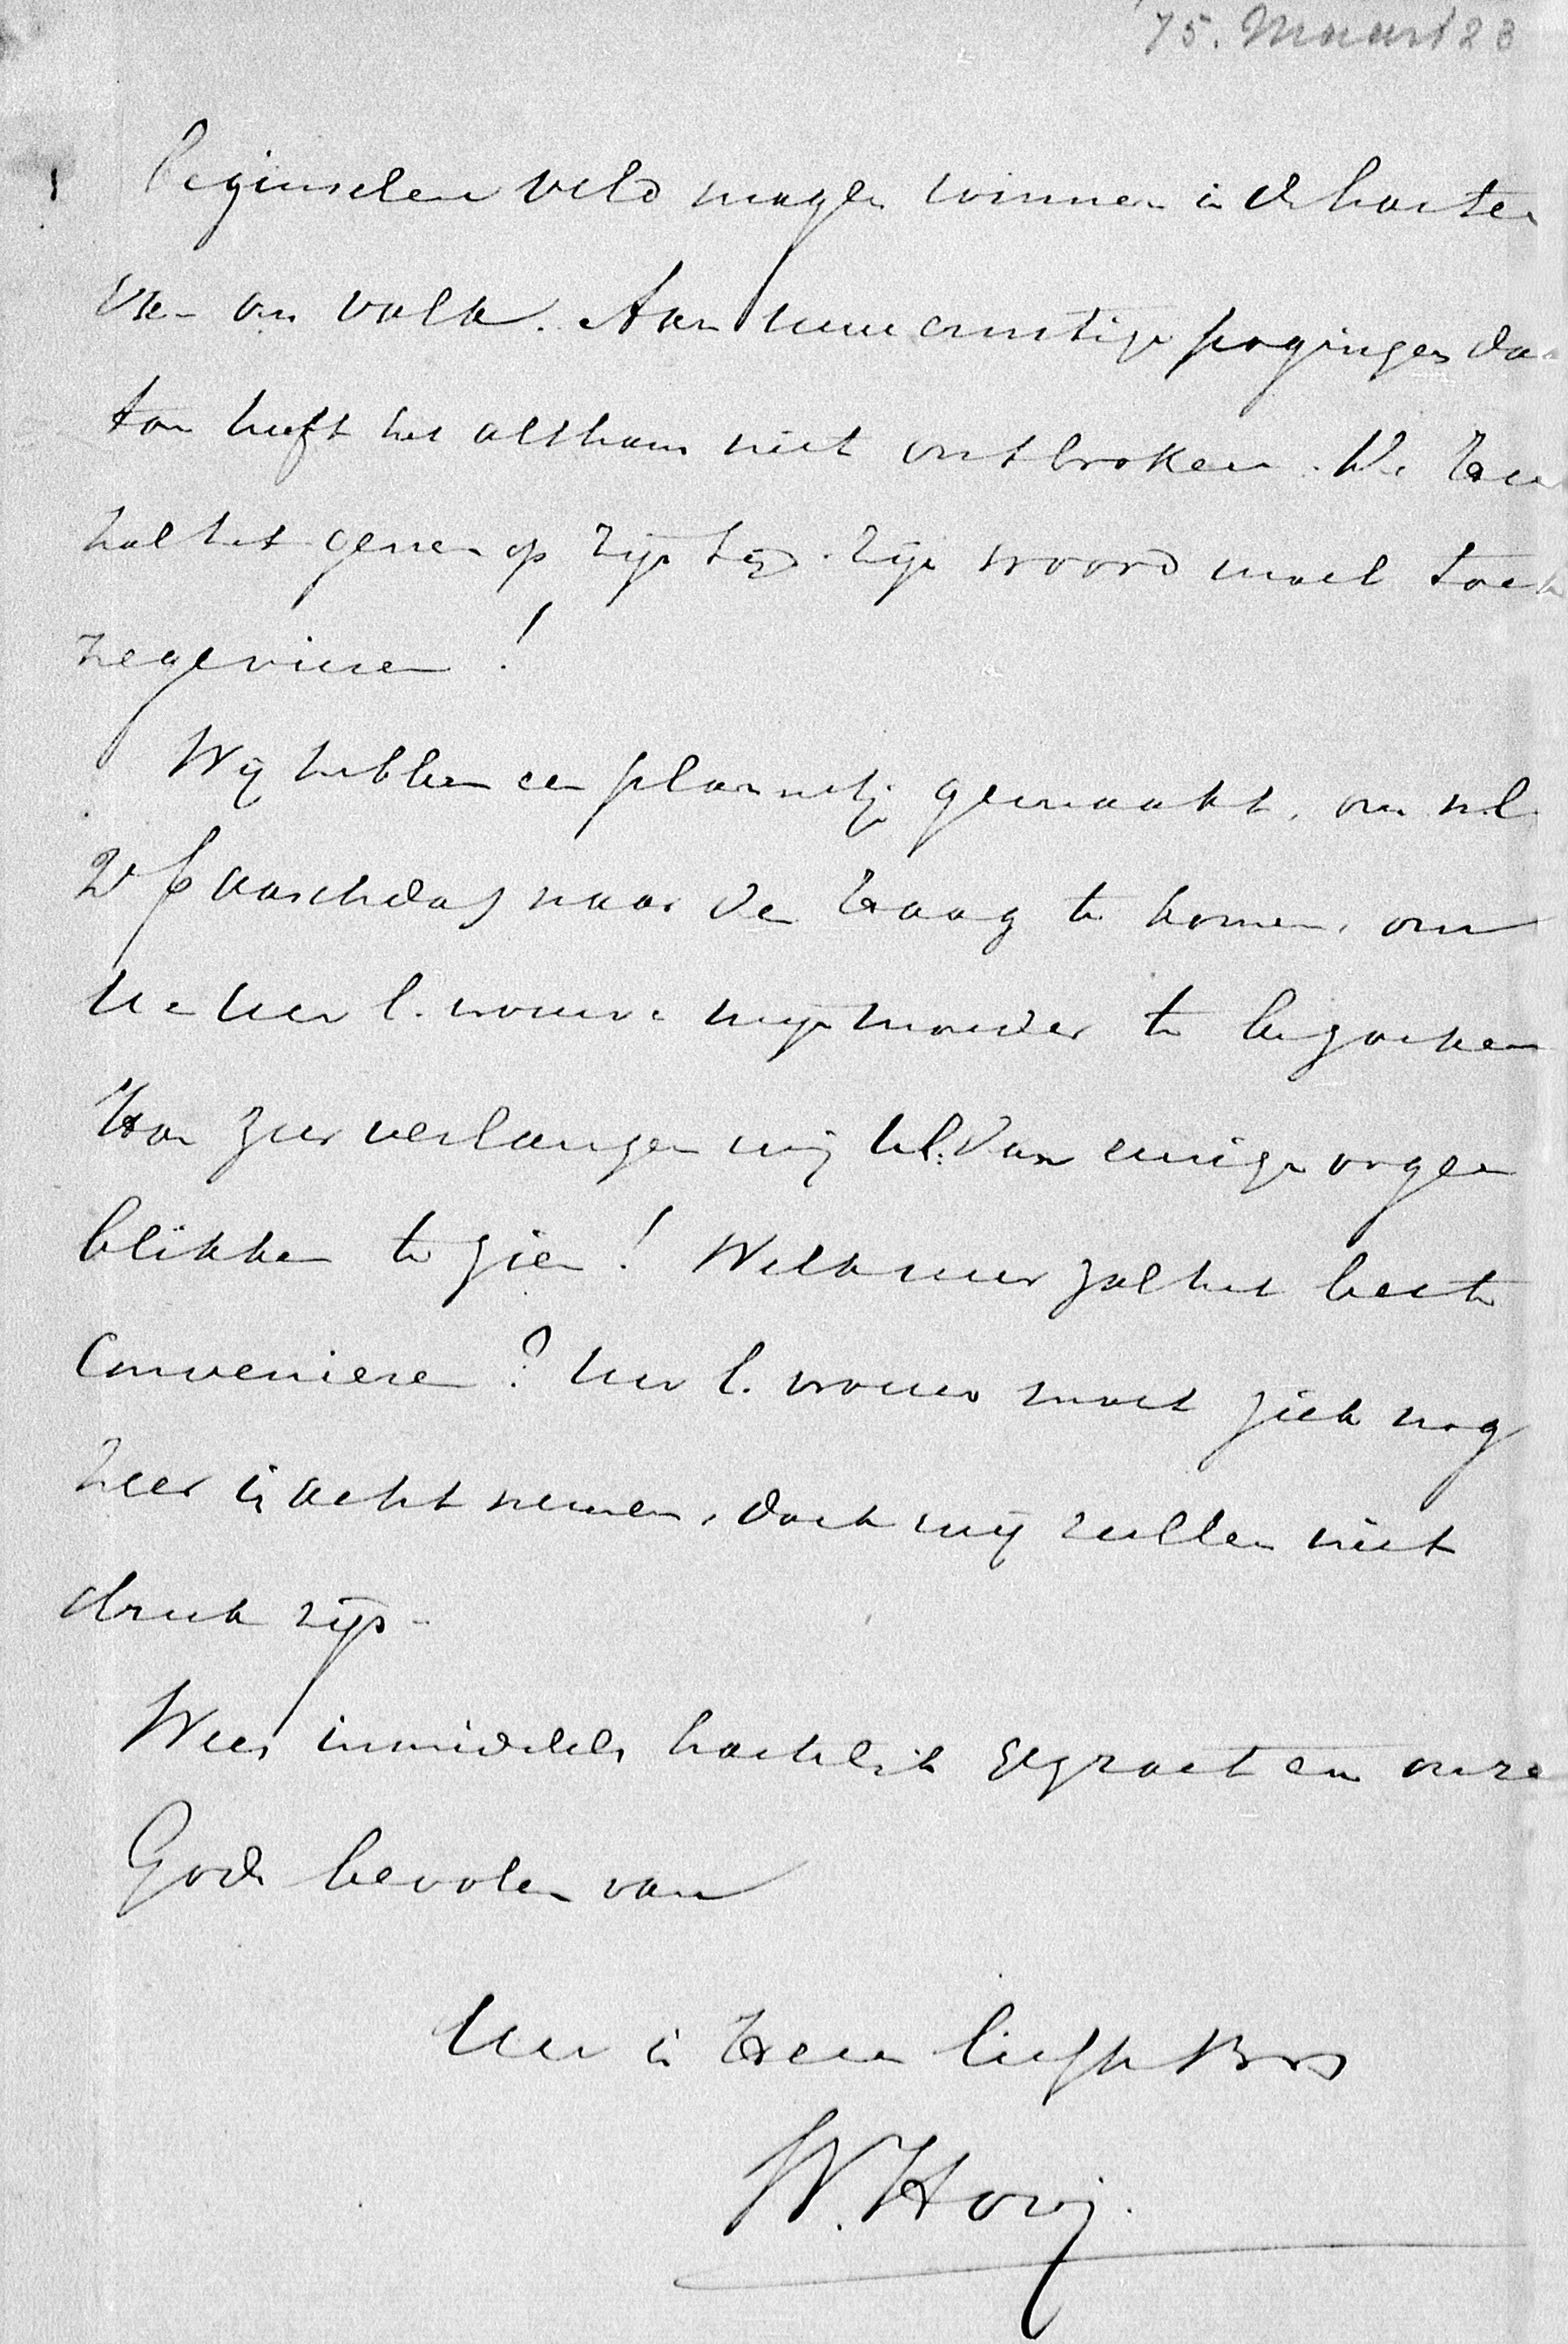 '75. Maart 23
beginselen veld mogen winnen in de harten
van ons volk. Aan uwe ernstige pogingen daar
toe heeft het althans niet ontbroken. De Heer
zal het geven op zijn tijd. Zijn woord moet toch
zegevieren!
Wij hebben een plannetje gemaakt, om n.l.
2e Paaschdag naar den Haag te komen, om
U en Uw l. vrouw mijn moeder te bezoeken
Hoe zeer verlangen wij U l. van eenige oogen
blikken te zien! Welk uur zal het best
convenieren? Uw l. vrouw moet zich nog
zeer in acht nemen, doch wij zullen niet
druk zijn.
Wees inmiddels hartelijk gegroet en onze
God bevolen van
Uw in Hem liefh. Br
W. Hovy.